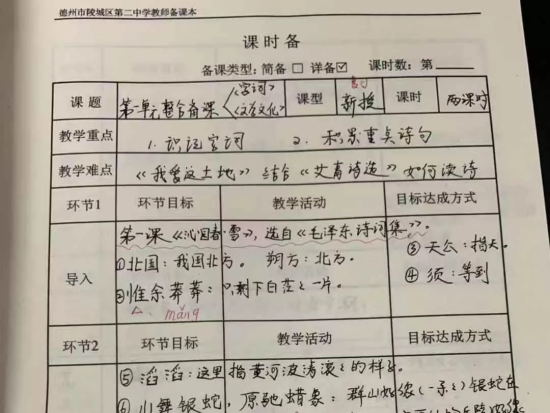 德州市陵城区第二中学教师备课本
课时备
备课类型：简备□ 详备☑ 课时数：第
课题 第一单元整合备课 《字词》 《文学文化》 课型 新授 课时 两课时
教学重点 1. 识记字词 2. 积累重点诗句
教学难点 《我爱这土地》结合《艾青诗选》如何读诗
环节1 环节目标 教学活动 目标达成方式
导入
第一课《沁园春·雪》，选自《毛泽东诗词集》。
①北国：我国北方。 朔方：北方。 ③天公：指天。
②惟余莽莽：只剩下白茫茫一片。 ④须：等到
mǎng
环节2 环节目标 教学活动 目标达成方式
⑤滔滔：这里指黄河波涛滚滚的样子。
⑥山舞银蛇，原驰蜡象：群山好像（一条条）银蛇在